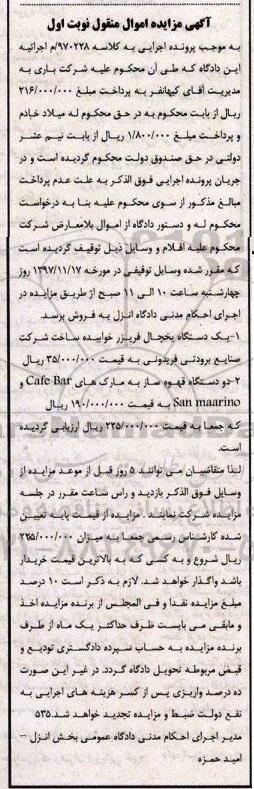 آگهی مزایده اموال منقول نوبت اول
به موجب پرونده اجرایی به کلاسه ۹۷۰۲۲۸/م اجرائیه
این دادگاه که طی آن محکوم علیه شرکت یاری به
مدیریت آقای کیهانفر به پرداخت مبلغ ۲۱۶/۰۰۰/۰۰۰
ریال از بابت محکوم به در حق محکوم له میلاد خادم
و پرداخت مبلغ ۱/۸۰۰/۰۰۰ ریال از بابت نیم عشر
دولتی در حق صندوق دولت محکوم گردیده است و در
جریان پرونده اجرایی فوق الذکر به علت عدم پرداخت
مبالغ مذکور از سوی محکوم علیه بنا به درخواست
محکوم له و دستور دادگاه از اموال بلامعارض شرکت
محکوم علیه اقلام و وسایل ذیل توقیف گردیده است
که مقرر شده وسایل توقیفی در مورخه ۱۳۹۷/۱۱/۱۷ روز
چهارشنبه ساعت ۱۰ الی ۱۱ صبح از طریق مزایده در
اجرای احکام مدنی دادگاه انزل به فروش برسد.
۱-یک دستگاه یخچال فریزر خوابیده ساخت شرکت
صنایع برودتی فریدونی به قیمت ۳۵/۰۰۰/۰۰۰ ریال
۲-دو دستگاه قهوه ساز به مارک های Cafe Bar و
San maarino به قیمت ۱۹۰/۰۰۰/۰۰۰ ریال
که جمعا به قیمت ۲۲۵/۰۰۰/۰۰۰ ریال ارزیابی گردیده
است.
لذا متقاضیان می توانند ۵ روز قبل از موعد مزایده از
وسایل فوق الذکر بازدید و راس ساعت مقرر در جلسه
مزایده شرکت نمایند. مزایده از قیمت پایه تعیین
شده کارشناس رسمی جمعا به میزان ۲۲۵/۰۰۰/۰۰۰
ریال شروع و به کسی که به بالاترین قیمت خریدار
باشد واگذار خواهد شد. لازم به ذکر است ۱۰ درصد
مبلغ مزایده نقدا و فی المجلس از برنده مزایده اخذ
و مابقی می بایست ظرف حداکثر یک ماه از طرف
برنده مزایده به حساب سپرده دادگستری تودیع و
قبض مربوطه تحویل دادگاه گردد. در غیر این صورت
ده درصد واریزی پس از کسر هزینه های اجرایی به
نفع دولت ضبط و مزایده تجدید خواهد شد.۵۳۵
مدیر اجرای احکام مدنی دادگاه عمومی بخش انزل -
امید حمزه